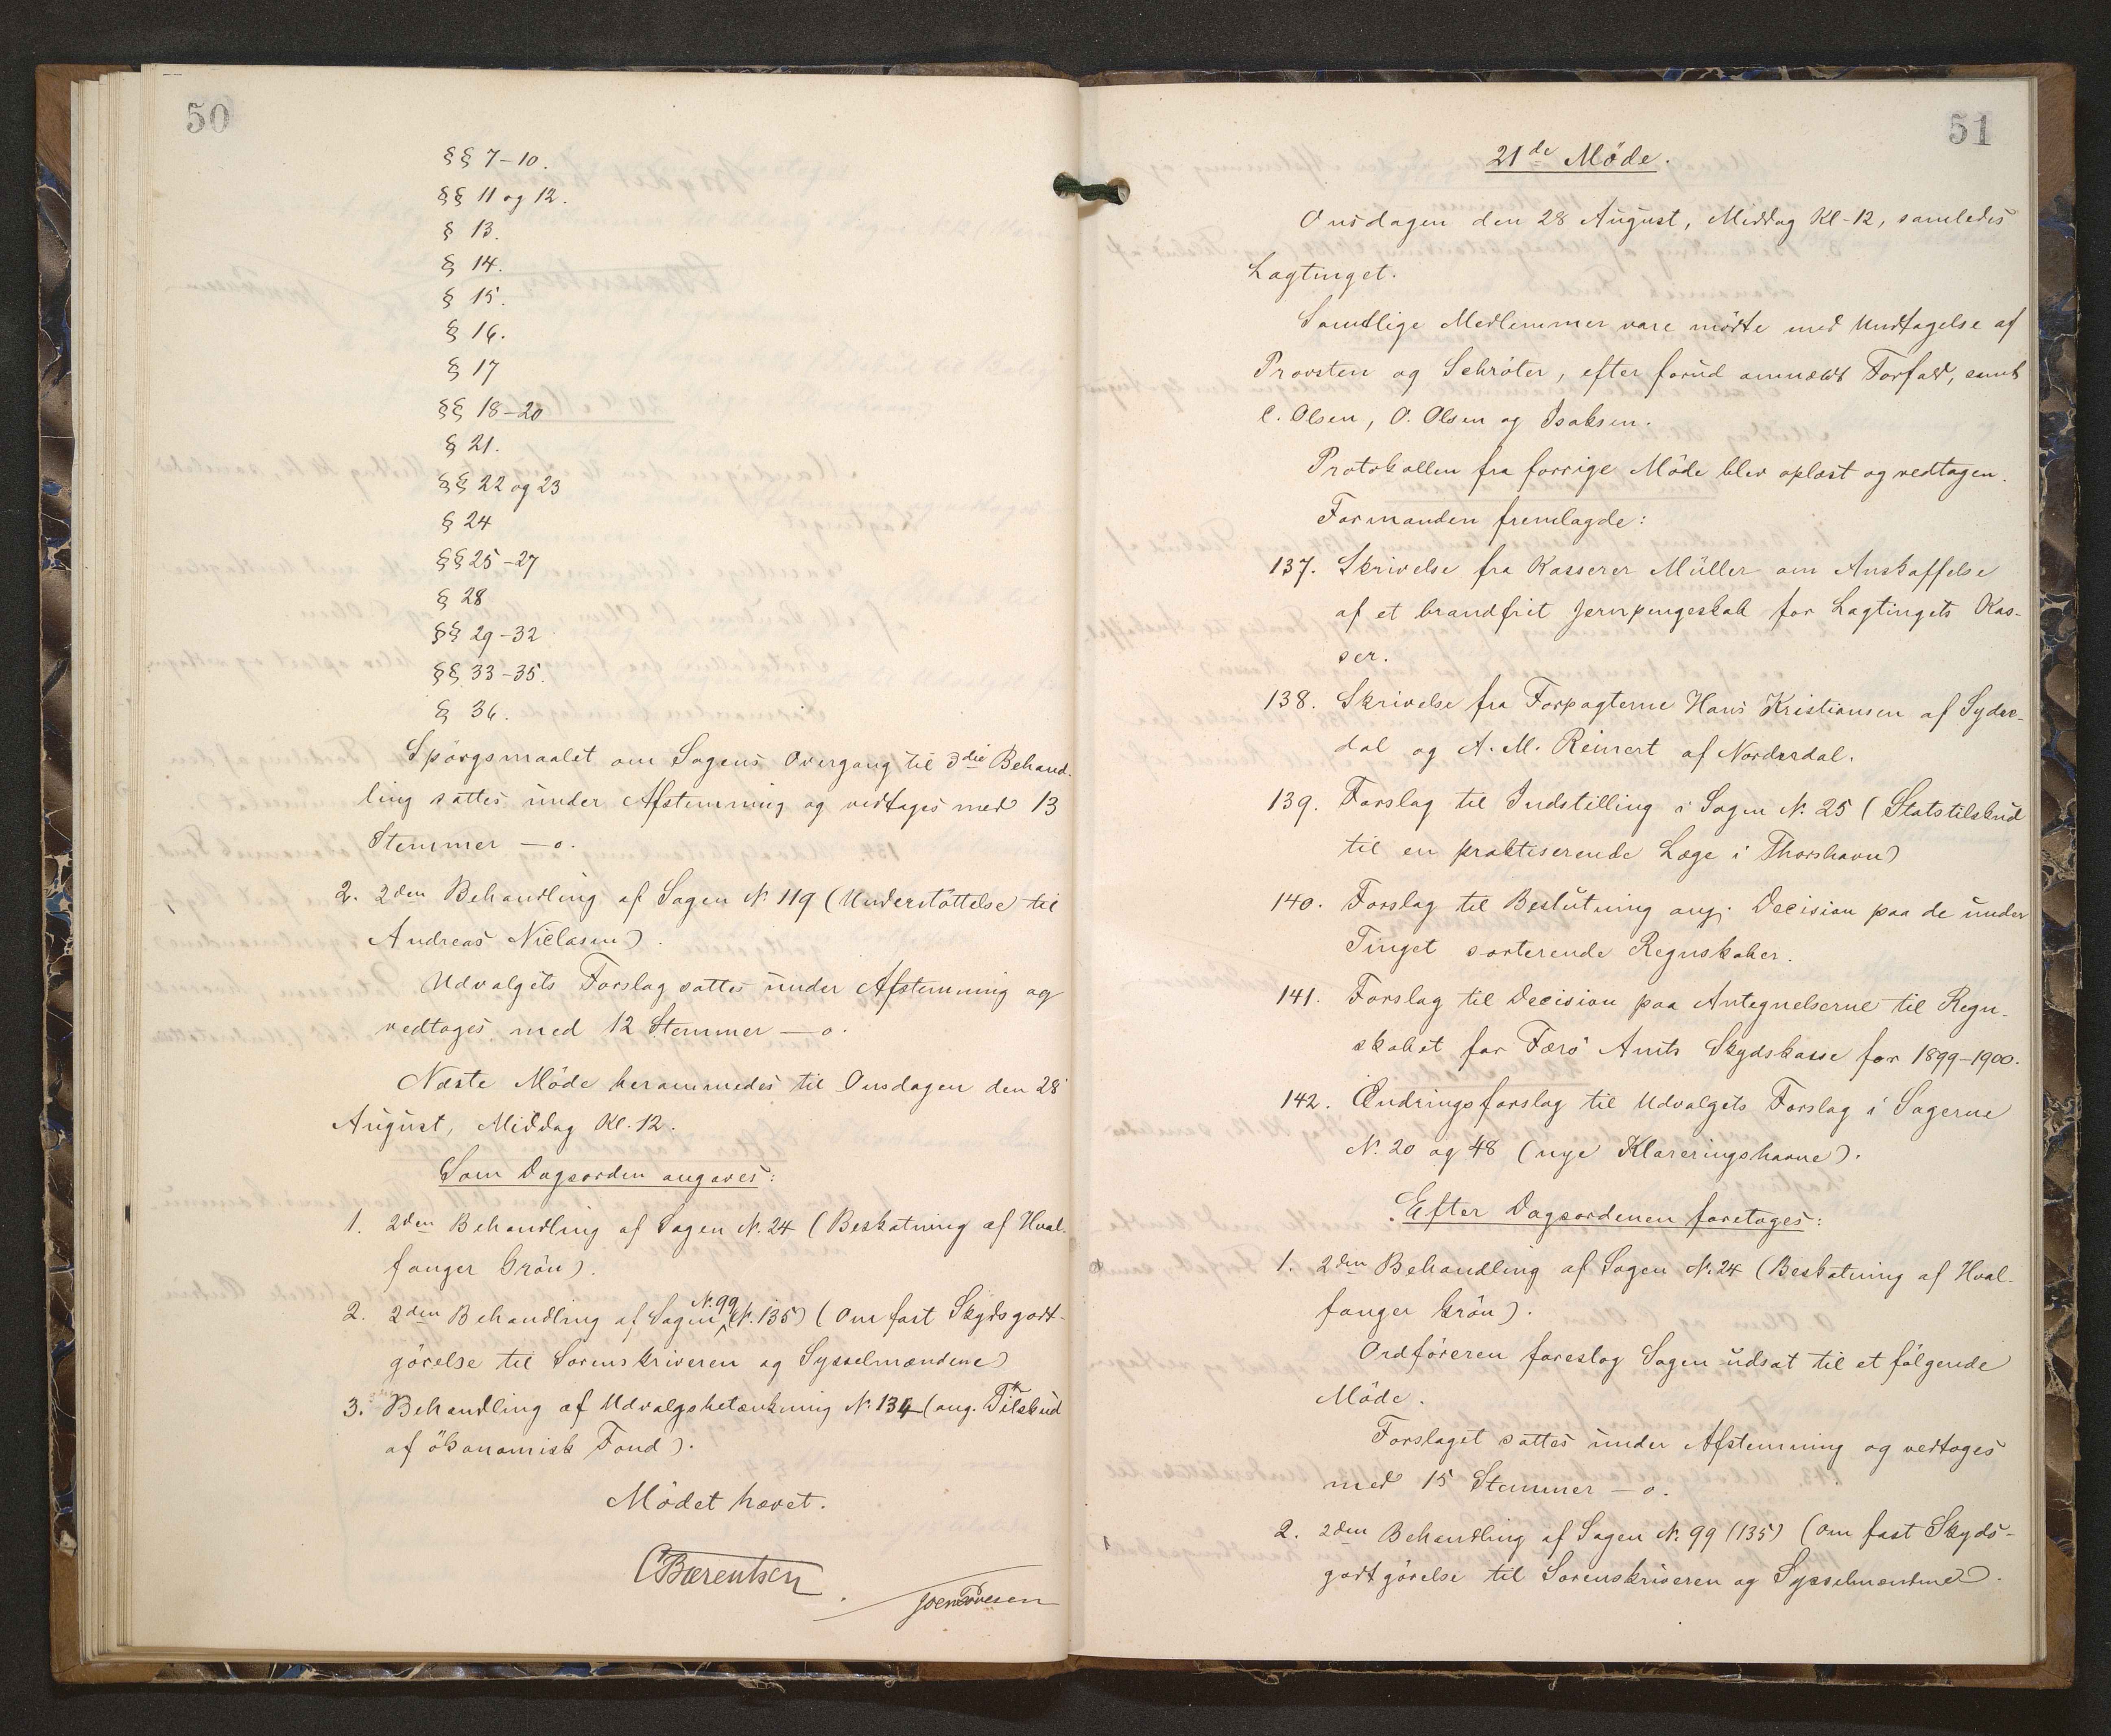 50
§§ 7-10.
§§ 11 og 12.
§ 13.
§ 14.
§ 15.
§ 16.
§ 17
§§ 18-20
§ 21.
§§ 22 og 23
§ 24
§§ 25-27
§ 28
§§ 29-32
§§ 33-35.
§ 36.
Spörgsmaalet om Sagens Overgang til 3die Behand-
ling sattes under Afstemning og vedtoges med 13
Stemmer — 0.
2. 2den Behandling af Sagen N. 119 (Understöttelse til
Andreas Niclasen).
Udvalgets Forslag sattes under Afstemning og
vedtoges med 12 Stemmer — 0.
Næste Möde berammedes til Onsdagen den 28
August, Middag Kl. 12.
Som Dagsorden angaves:
1. 2den Behandling af Sagen N. 24 (Beskatning af Hval-
fanger Grön).
2. 2den Behandling af Sagen N. 99 (N. 135) (Om fast Skydsgodt-
görelse til Sorenskriveren og Sysselmændene)
3. Behandling af Udvalgsbetænkning N. 134 (ang. Tilskud
af ökonomisk Fond).
Mödet hævet.
CBærentsen
Joen Poulsen
51
21de Möde.
Onsdagen den 28 August, Middag Kl. 12, samledes
Lagtinget.
Samtlige Medlemmer vare mödte med Undtagelse af
Provsten og Schröter, efter forud anmældt Forfald, samt
C. Olsen, O. Olsen og Isaksen.
Protokollen fra forrige Möde blev oplæst og vedtagen.
Formanden fremlagde:
137. Skrivelse fra Kasserer Müller om Anskaffelse
af et brandfrit Jernpengeskab for Lagtingets Kas-
ser.
138. Skrivelse fra Forpagterne Hans Kristiansen af Sydre-
dal og A. M. Reinert af Nordredal.
139. Forslag til Indstilling i Sagen N. 25 (Statstilskud
til en praktiserende Læge i Thorshavn)
140. Forslag til Beslutning ang. Decision paa de under
Tinget sorterende Regnskaber.
141. Forslag til Decision paa Antegnelserne til Regn-
skabet for Færö Amts Skydskasse for 1899-1900.
142. Ændringsforslag til Udvalgets Forslag i Sagerne
N. 20 og 48 (nye Klareringshavne).
Efter Dagsordenen foretoges:
1. 2den Behandling af Sagen N. 24 (Beskatning af Hval-
fanger Grön).
Ordföreren foreslog Sagen udsat til et fölgende
Möde.
Forslaget sattes under Afstemning og vedtoges
med 15 Stemmer — 0.
2. 2den Behandling af Sagen N. 99 (135) (om fast Skyds-
godtgörelse til Sorenskriveren og Sysselmændene).